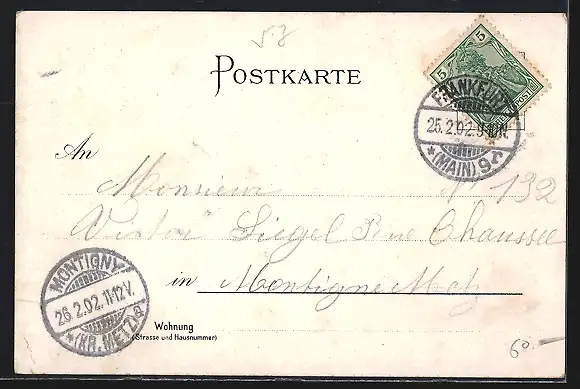 58
POSTKARTE
5 5
REICHSPOST
FRANKFURT
25.2.02.9-10N.
*(MAIN) 9r
An
Monsieur No 192
Victor Siegel Rue Chaussée
in Montigne Metz
MONTIGNY
26.2.02.11-12V.
*(KR. METZ)a
Wohnung
(Strasse und Hausnummer)
60.-